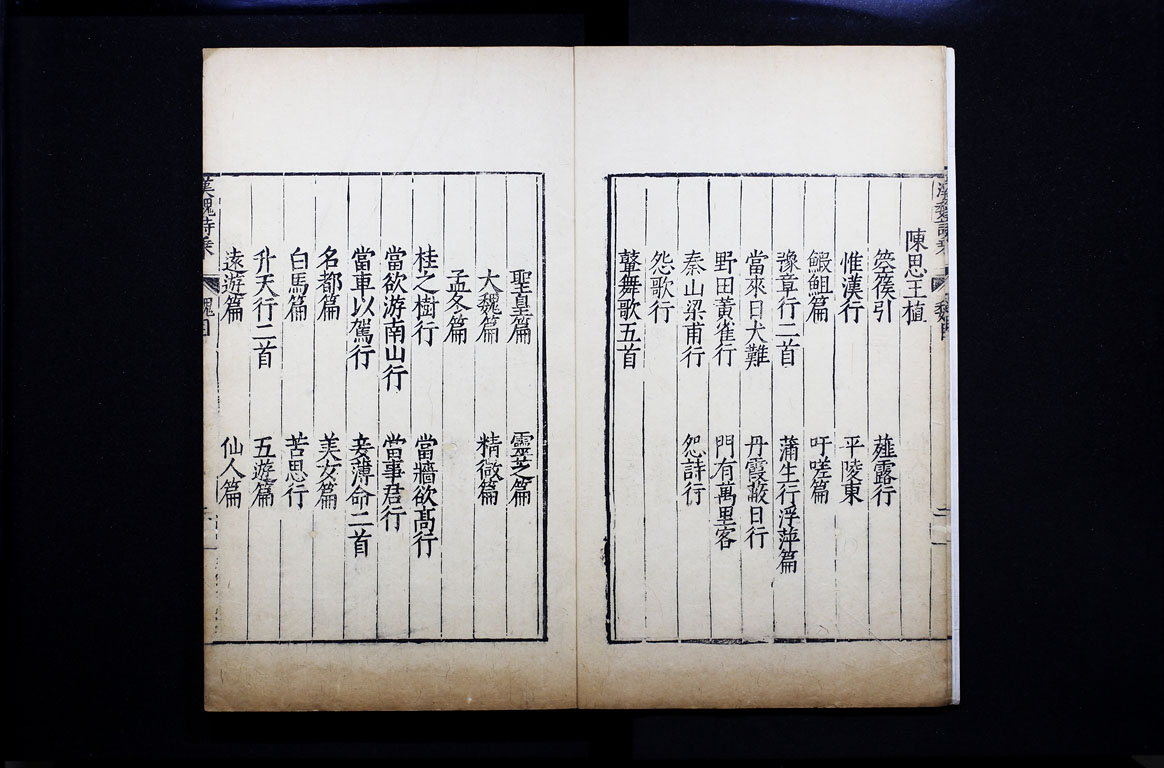 陳思王植
箜篌引 薤露行
惟漢行 平陵東
鰕䱇篇 吁嗟篇
豫章行二首 蒲生行浮萍篇
當來日大難 丹霞蔽日行
野田黃雀行 門有萬里客
秦山梁甫行 怨詩行
怨歌行
鼙舞歌五首
聖皇篇 靈芝篇
大魏篇 精微篇
孟冬篇
桂之樹行 當牆欲高行
當欲游南山行 當事君行
當車以駕行 妾薄命二首
名都篇 美女篇
白馬篇 苦思行
升天行二首 五遊篇
遠遊篇 仙人篇
漢魏詩乘 魏目